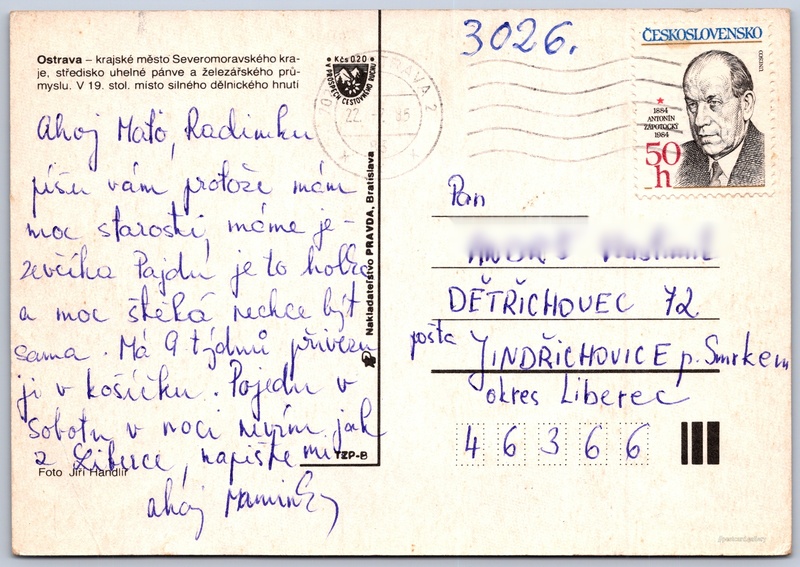 Ostrava – krajské město Severomoravského kra-
je, středisko uhelné pánve a železářského prů-
myslu. V 19. stol. místo silného dělnického hnutí
Ahoj Maťo, Radimku
píšu vám protože mám
moc starostí, máme je-
zevčíka Pajdu je to holka
a moc štěká nechce být
sama. Má 9 týdnů přivezu
ji v košíčku. Pojedu v
Sobotu v noci nevím jak
z Liberce, napište mi
ahoj Maminka
Foto Jiří Handlíř
TZP-B
Nakladatelství PRAVDA, Bratislava
Kčs 0.20
V PROSPĚCH CESTOVNÉHO RUCHU
OSTRAVA 2
22.
85
3026.
ČESKOSLOVENSKO
1884
ANTONÍN
ZÁPOTOCKÝ
1984
50
h
Pan
DĚTŘICHOVEC 72
pošta JINDŘICHOVICE p. Smrkem
okres Liberec
46366